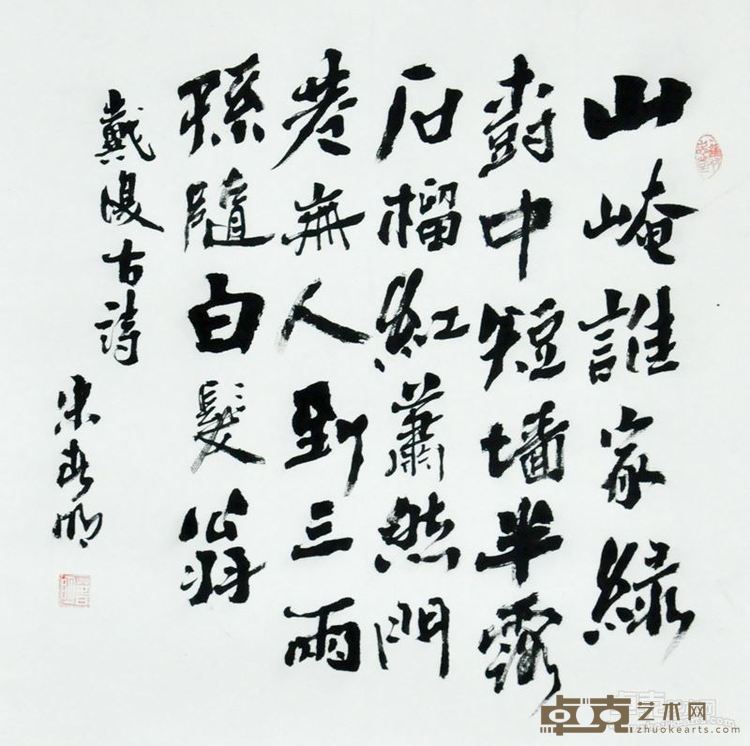 山崦誰家綠
樹中短墙半露
石榴紅蕭然門
巷無人到三兩
孫隨白髮翁
戴復古詩
明
卓克艺术网
zhuokearts.com